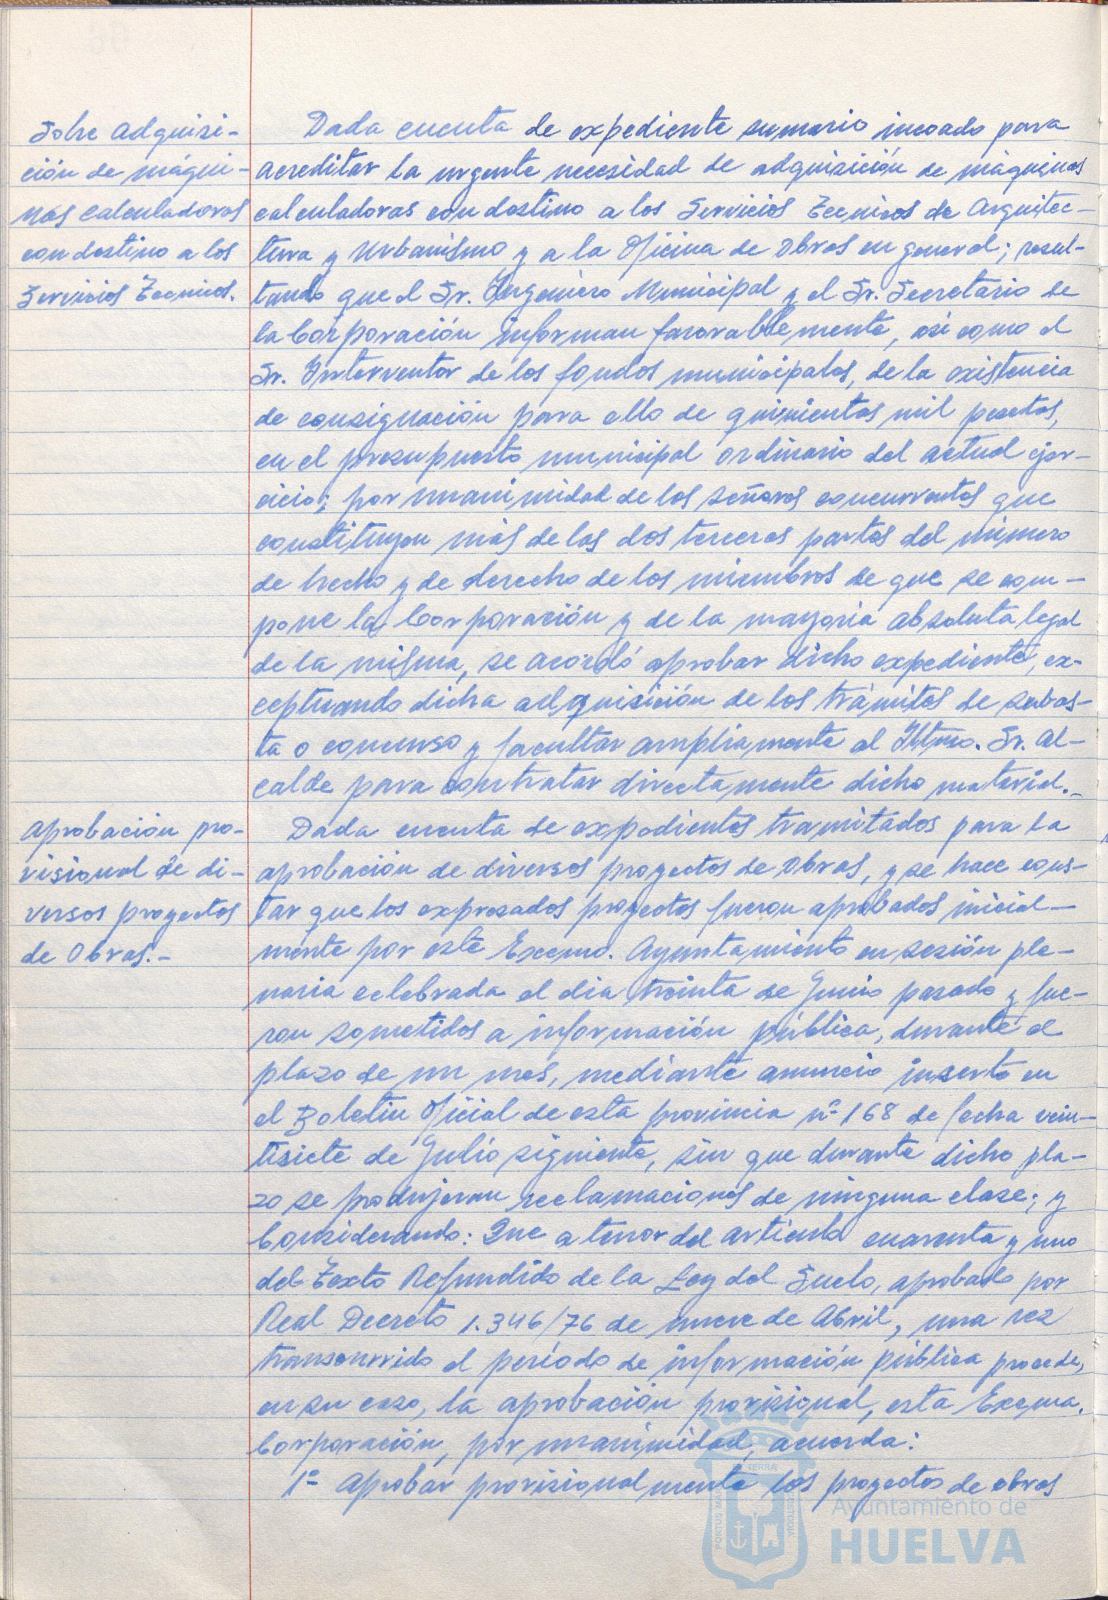 Sobre adquisi-
ción de máqui-
nas calculadoras
con destino a los
Servicios Tecnicos.
Dada cuenta de expediente sumario incoado para
acreditar la urgente necesidad de adquisición de máquinas
calculadoras con destino a los Servicios Tecnicos de Arquitec-
tura y Urbanismo y a la Oficina de Obras en general; resul-
tando que el Sr. Ingeniero Municipal y el Sr. Secretario de
la Corporación informan favorablemente, asi como el
Sr. Interventor de los fondos municipales, de la existencia
de consignación para ello de quinientas mil pesetas,
en el presupuesto municipal ordinario del actual ejer-
cicio; por unanimidad de los señores concurrentes que
constituyen más de las dos terceras partes del número
de hecho y de derecho de los miembros de que se com-
pone la Corporación y de la mayoria absoluta legal
de la misma, se acordó aprobar dicho expediente, ex-
ceptuando dicha adquisición de los trámites de subas-
ta o concurso y facultar ampliamente al Iltmo. Sr. Al-
calde para contratar directamente dicho material.-
Aprobación pro-
visional de di-
versos proyectos
de Obras.-
Dada cuenta de expedientes tramitados para la
aprobación de diversos proyectos de Obras, y se hace cons-
tar que los expresados proyectos fueron aprobados inicial-
mente por este Excmo. Ayuntamiento en sesión ple-
naria celebrada el dia treinta de Junio pasado y fue-
ron sometidos a información pública, durante el
plazo de un mes, mediante anuncio inserto en
el Boletin Oficial de esta provincia nº 168 de fecha vein-
tisiete de Julio siguiente, sin que durante dicho pla-
zo se produjeran reclamaciones de ninguna clase; y
Considerando: Que a tenor del articulo cuarenta y uno
del Texto Refundido de la Ley del Suelo, aprobado por
Real Decreto 1.346/76 de nueve de Abril, una vez
transcurrido el período de información pública procede,
en su caso, la aprobación provisional, esta Excma.
Corporación, por unanimidad, acuerda:
1º Aprobar provisionalmente los proyectos de obras
Ayuntamiento de
HUELVA